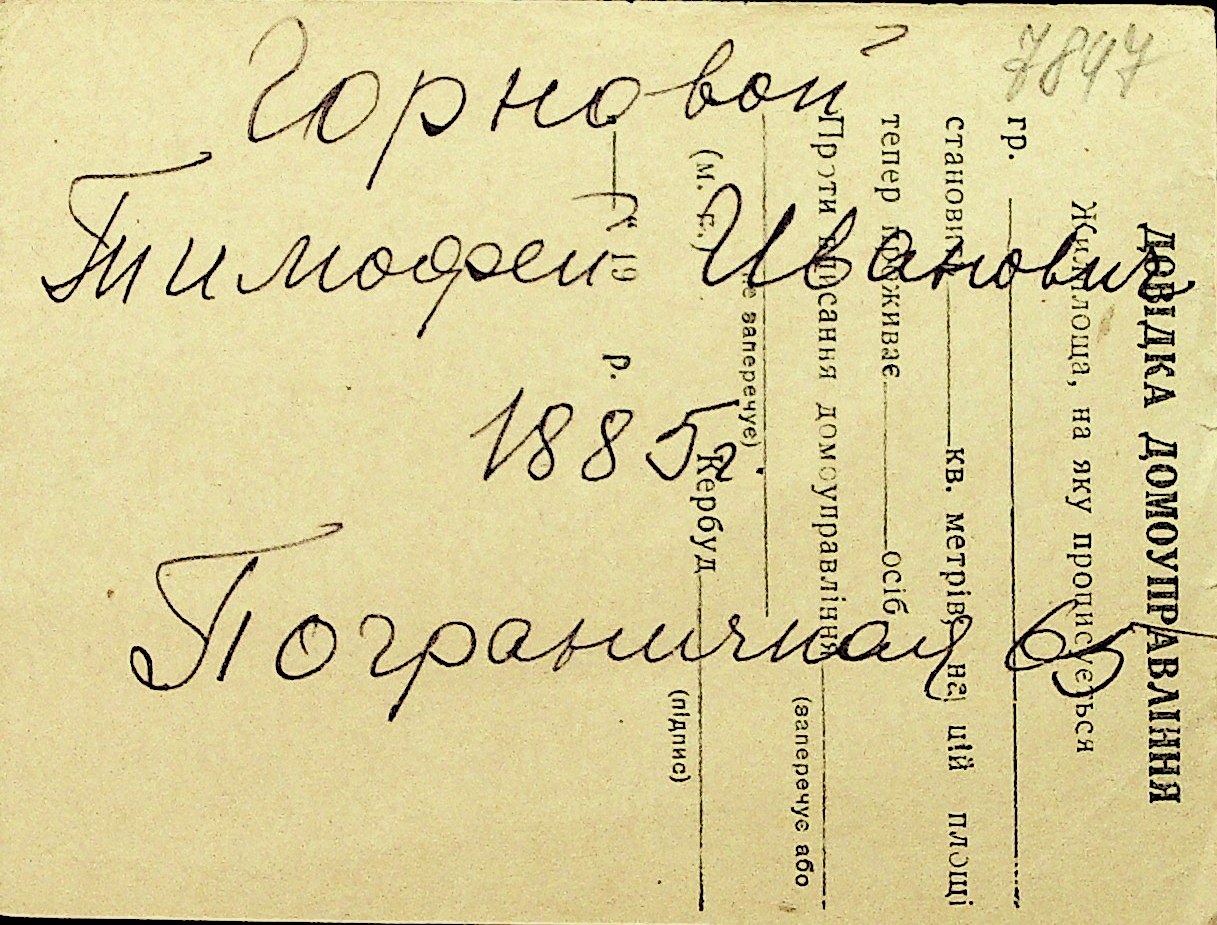 7847
Горновой
Тимофей Иванович
1885 г.
Пограничная 65
ДОВІДКА ДОМОУПРАВЛІННЯ
Житлоща, на яку прописується
гр.
становить кв. метрів, на цій площі
тепер проживає осіб
Проти вписання домоуправління
(заперечує або
не заперечує)
(м. п.) Кербуд
(підпис)
" 19 р.